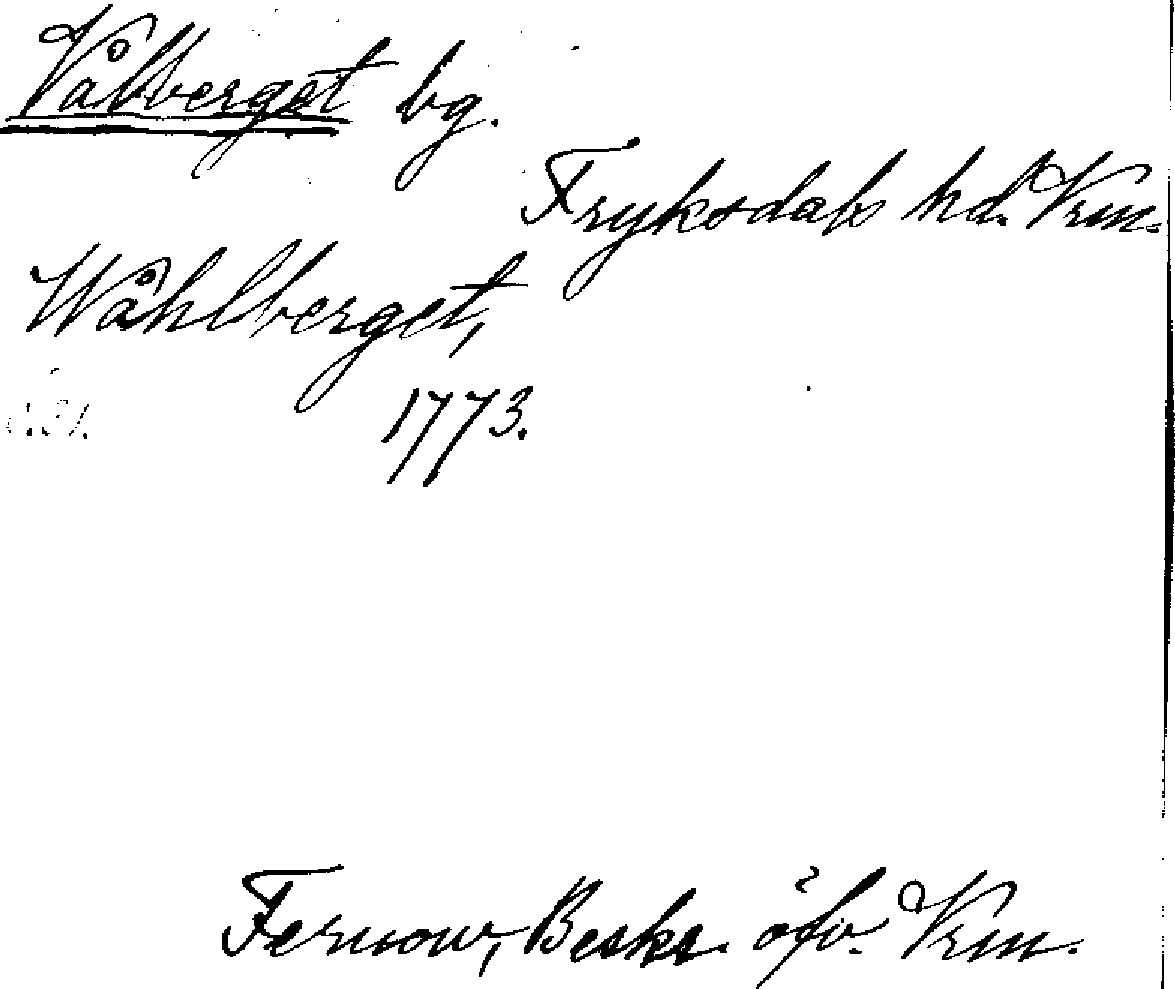 Vålberget bg.
Fryksdals hd. Vrm.
Wåhlberget,
1773.
Fernow, Beskr. öfv. Vrm.